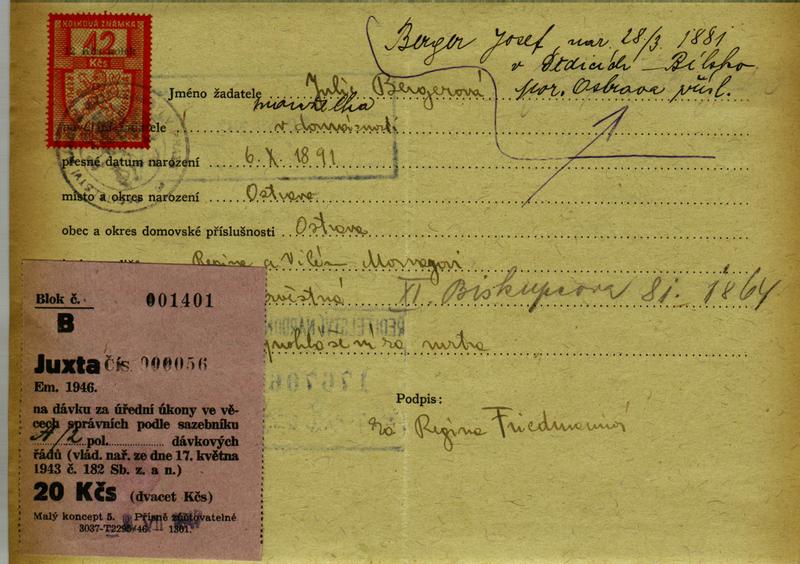 KOLKOVÁ ZNÁMKA
12
Kčs
Berger Josef, nar. 28/3 1881
v Dědicích – Bílsko
por. Ostrava přísl.
Jméno žadatele Julie Bergerová
manželka
v domácnosti
přesné datum narození 6. X. 1891
místo a okres narození Ostrava
obec a okres domovské příslušnosti Ostrava
Regina a Vilém
XI. Biskupcova 81. 1864
prohlášení za mrtva
Podpis:
za Regina Friedmannová
Blok č. 001401
B
Juxta čís. 000056
Em. 1946.
na dávku za úřední úkony ve vě-
cech správních podle sazebníku
A/2 pol. dávkových
řádů (vlád. nař. ze dne 17. května
1943 č. 182 Sb. z. a n.)
20 Kčs (dvacet Kčs)
Malý koncept 5. Přísně zúčtovatelné
3037-T2295/46. — 1301.